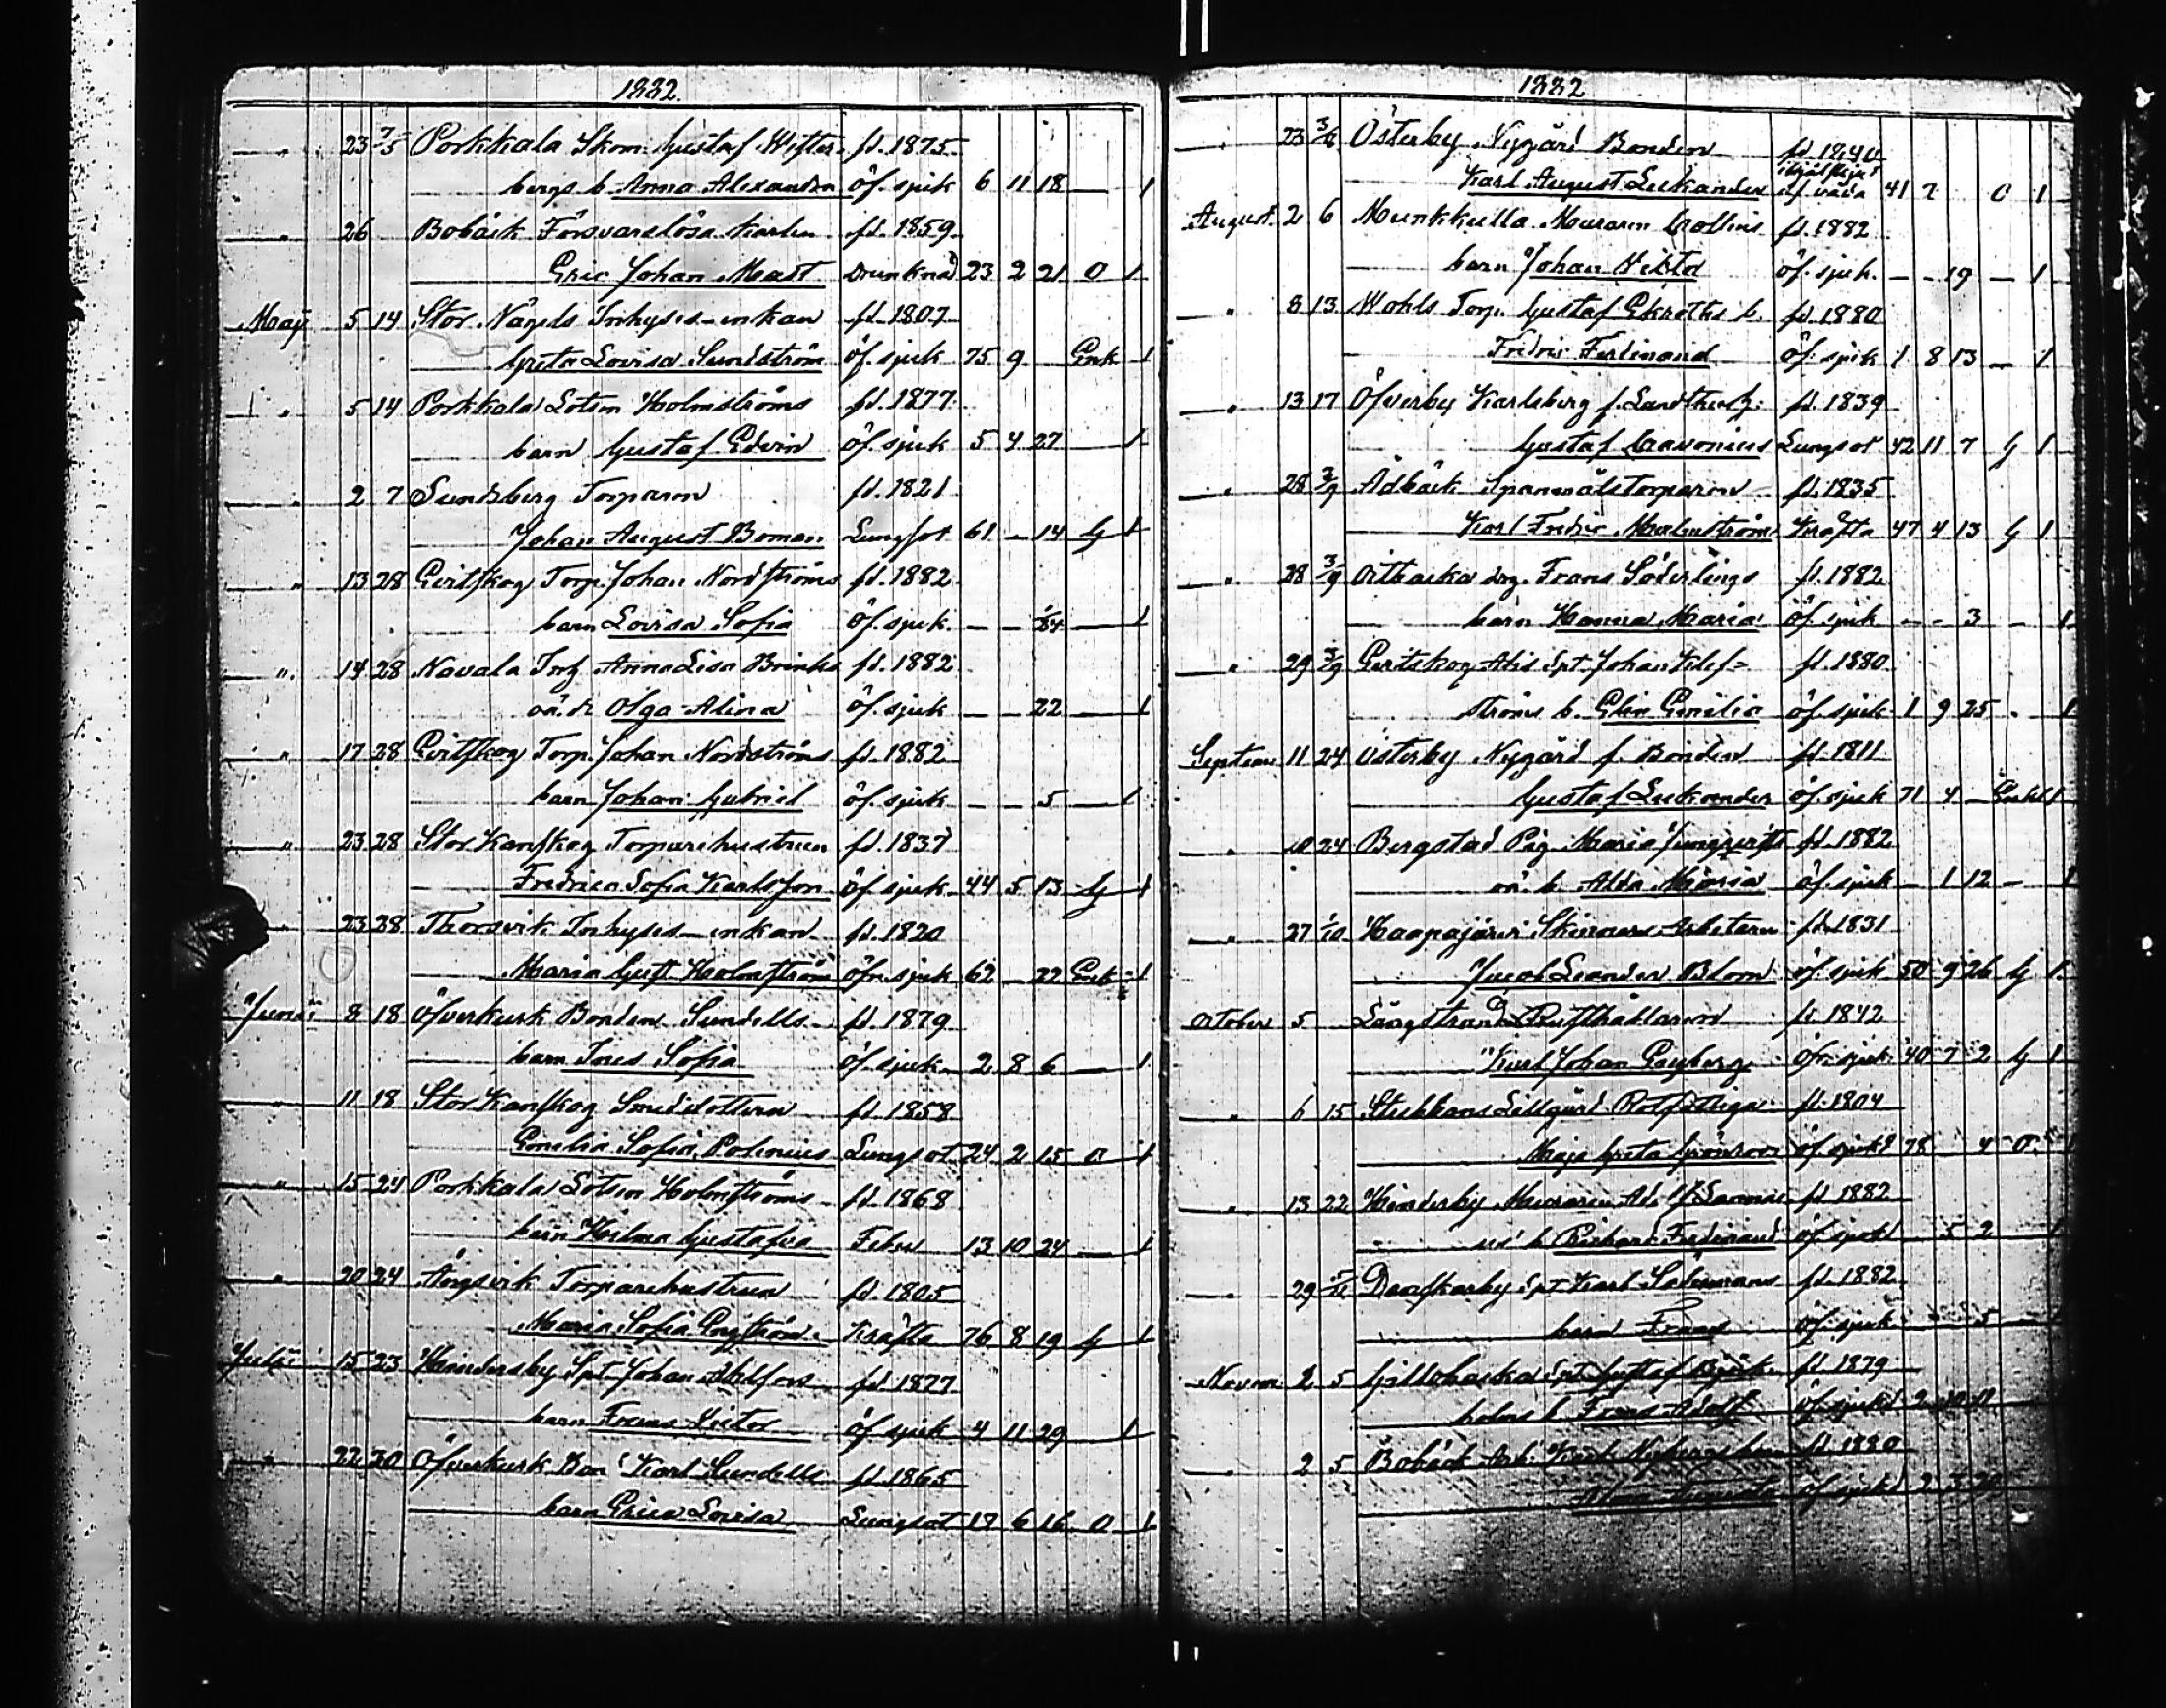 1882.
" 23 7/5 Porkkala Skom. Gustaf Wester- fd. 1875
bergs b. Anna Alexandra öf. sjuk 6 11 18 — 1
" 26 Bobäck Försvarslösa karlen fd. 1859
Eric Johan Mast Drunknad 23 2 21 O 1
Maji 5 14 Stor Nägels Inhyses-enkan fd. 1807
Greta Lovisa Sundström öf. sjuk 75 9 Enk 1
" 5 14 Porkkala Lotsen Holmströms fd. 1877
barn Gustaf Edvin öf. sjuk 5 4 27 — 1
" 2 7 Sundsberg Torparen fd. 1821
Johan August Boman Lungsot 61 — 14 G 1
" 13 28 Evitskog Torp. Johan Nordströms fd. 1882
barn Lovisa Sofia öf. sjuk — — 1
" 14 28 Navala Inh. Anna Lisa Brinks fd. 1882
oä. dr Olga Alina öf. sjuk — — 22 — 1
" 17 28 Evitskog Torp. Johan Nordströms fd. 1882
barn Johan Gabriel öf. sjuk — — 5 — 1
" 23 28 Stor Kanskog Torparehustrun fd. 1837
Fredrica Sofia Karlsson öf. sjuk 44 5 13 G 1
" 23 28 Thorsvik Inhyses-enkan fd. 1820
Maria Gust. Holmström öfr. sjuk 62 — 22 Enk 1
Junii 8 18 Öfverkurk Bonden Sundells fd. 1879
barn Ines Sofia öf. sjuk 2 8 6 — 1
" 11 18 Stor Kanskog Smedsdottern fd. 1858
Emilia Sofia Polenius Lungsot 24 2 15 O 1
" 15 24 Porkkala Lotsen Holmströms fd. 1868
barn Hilma Gustafva Feber 13 10 24 — 1
" 20 24 Ängsvik Torparehustrun fd. 1805
Maria Sofia Engström Kräfta 76 8 19 G 1
Julii 15 23 Hindersby Spt. Johan fd. 1877
barn Frans Victor öf. sjuk 4 11 29 1
" 22 30 Öfverkurk Bon. Karl Sundells fd. 1865
barn Erica Lovisa Lungsot 17 6 16 O 1
1882
" 23 Österby Nygård Bonden fd. 1840
Karl August Lukander 41 7 O 1
August. 2 6 Munkkulla Muraren Collins fd. 1882
barn Johan öf. sjuk — — 19 — 1
" 8 13 Wohls Torp. Gustaf Ekroths b. fd. 1880
Fredric Ferdinand öf. sjuk 1 8 13 — 1
" 13 17 Öfverby Karlsberg f. fd. 1839
Gustaf Lungsot 42 11 7 G 1
" 28 3/9 Ådbäck Spanmålstorparen fd. 1835
Karl Fredric Malmström Kräfta 47 4 13 G 1
" 28 3/9 Öitbacka drg. Frans Söderlings fd. 1882
barn Hanna Maria öf. sjuk — — 3 — 1
" 29 3/9 Evitskog Ahis Spt. Johan Klef- fd. 1880
ströms b. Elin Emilia öf. sjuk 1 9 25 1
Septem. 11 24 Österby Nygård f. Bonden fd. 1811
Gustaf Lukander öf. sjuk 71 4 — Enkl 1
" 20 24 Bergstad Pig. Maria fd. 1882
oä. b. Alda Maria öf. sjuk — 1 12 — 1
" 27 1/10 Haapajärvi Arbetaren fd. 1831
Jacob Leander Blom öf. sjuk 50 9 26 G 1
October 5 Långstrand Rusthållaren fd. 1842
Karl Johan Engberg öfr. sjuk 40 7 2 G 1
" 6 15 Stubbans Lillgård Rotfattiga fd. 1804
Maja Greta Grönroos öf. sjuk 78 4 O 1
" 13 22 Hindersby Muraren fd. 1882
b. Richard Ferdinand öf. sjuk 5 2 1
" 29 Danskarby Spt. Karl fd. 1882
barn Frans öf. sjuk 5 1
Novem. 2 5 Gillobacka Spt. Gustaf Björk- fd. 1879
holms b. Frans Adolf öf. sjuk 2
" 2 5 Bobäck Arb. Karl Nybergs barn fd. 1880
Augusta öf. sjuk 2 3